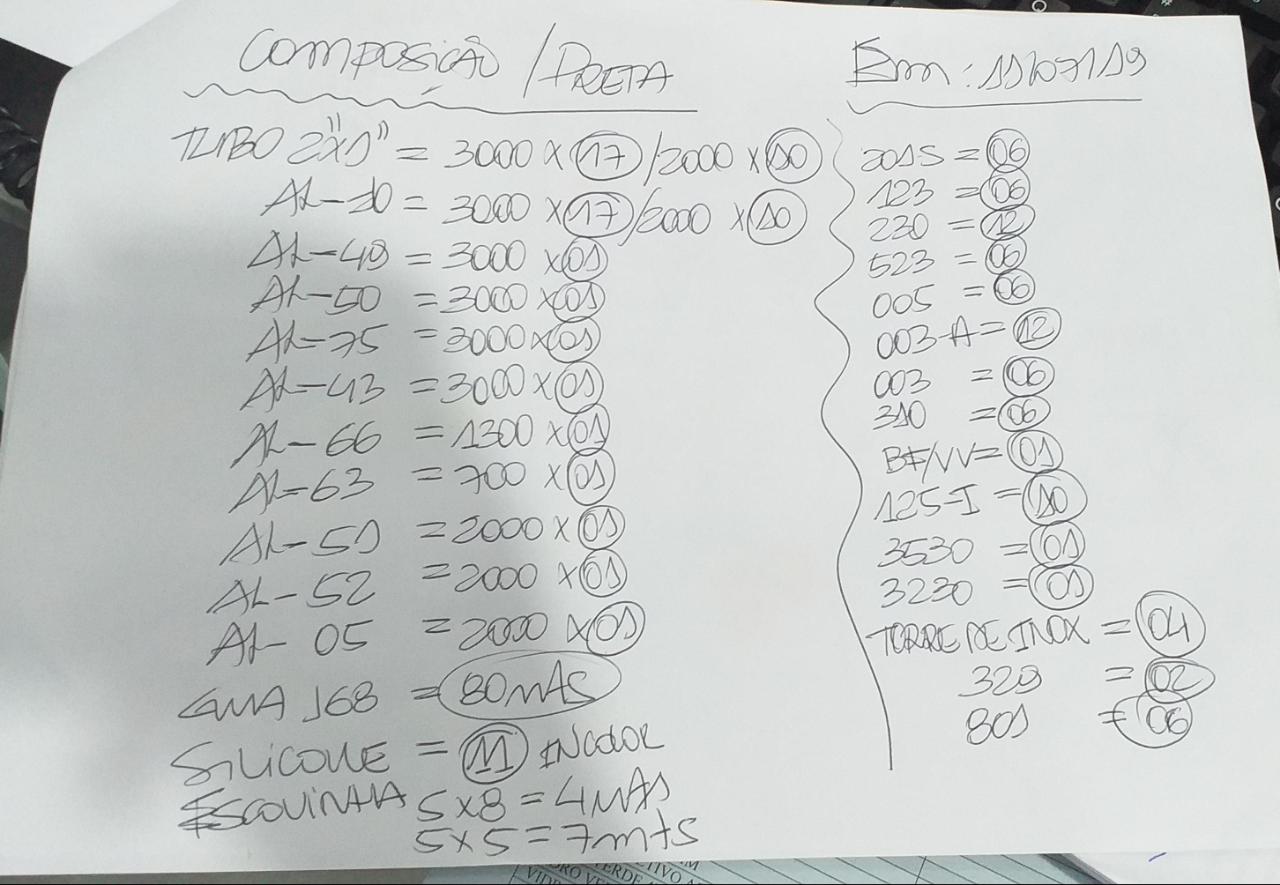 COMPOSIÇÃO / PRETA
TUBO 2"x1" = 3000 x 17 / 2000 x 10
AL-10 = 3000 x 17 / 2000 x 10
AL-49 = 3000 x 01
AL-50 = 3000 x 01
AL-75 = 3000 x 01
AL-43 = 3000 x 01
AL-66 = 1300 x 01
AL-63 = 700 x 01
AL-51 = 2000 x 01
AL-52 = 2000 x 01
AL-05 = 2000 x 01
GUIA J68 = 80 mts
SILICONE = 11 INCOLOR
ESCOVINHA 5x8 = 4 mts
5x5 = 7mts
Em: 11/07/19
201S = 06
123 = 06
230 = 12
523 = 06
005 = 06
003-A = 12
003 = 06
310 = 06
BF/VV = 01
125-I = 10
3530 = 01
3230 = 01
TORRE DE INOX = 04
329 = 02
801 = 06